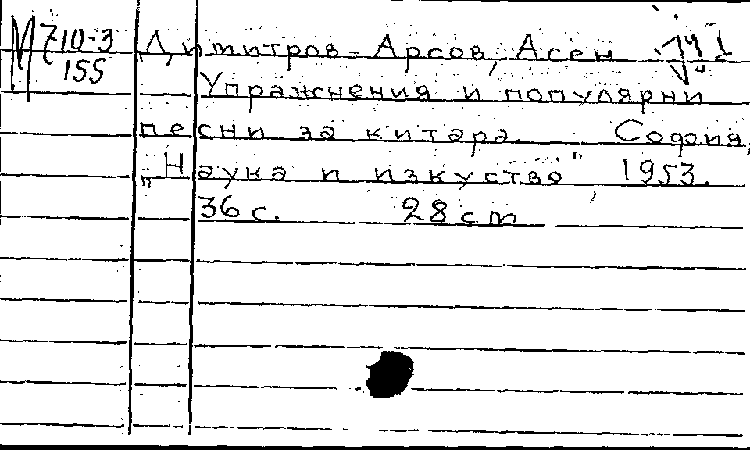 М710-3
155
Димитров-Арсов, Асен
Упражнения и популярни
песни за китара. София,
„Наука и изкуство", 1953.
36 с. 28 cm